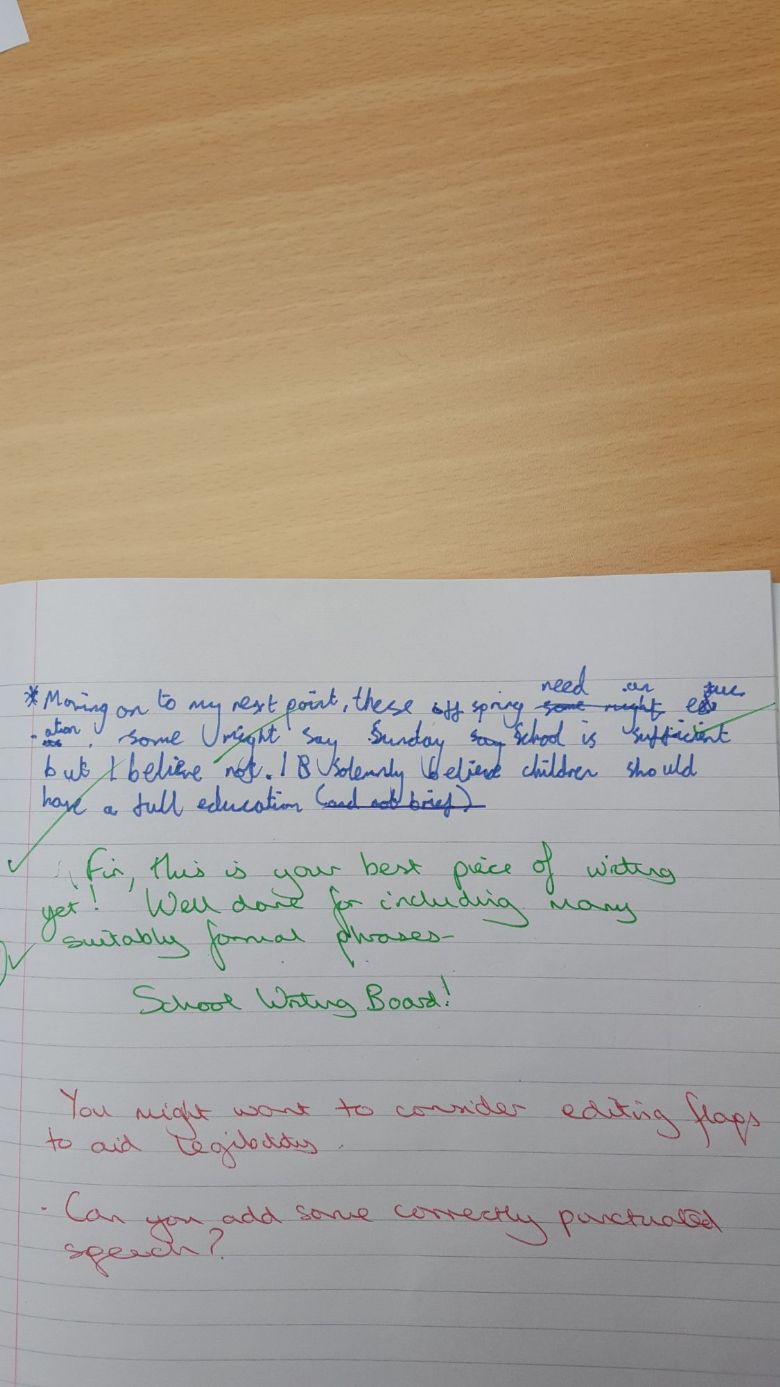 need an
*Moving on to my next point, these off spring some might educ
-ation. some might say Sunday say School is sufficient
but I believe not. I B solemnly believe children should
have a full education (and not brief)
Fin, this is your best piece of writing
yet! Well done for including many
suitably formal phrases-
School Writing Board!
You might want to consider editing flaps
to aid legibility.
- Can you add some correctly punctuated
speech?